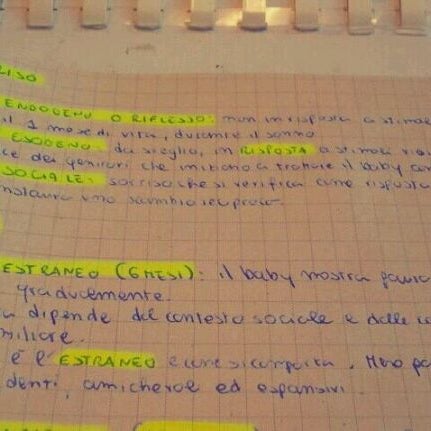 RISO
ENDOGENO O RIFLESSO: non in risposta a stimoli
il 1 mese di vita, durante il sonno
ESOGENO: da sveglio, in RISPOSTA a stimoli
ce dei genitori che iniziano a trattare il baby
SOCIALE: sorriso che si verifica come risposta
instaura uno scambio reciproco.
ESTRANEO (6 MESI): il baby mostra paura
gradualmente.
a dipende dal contesto sociale e dalle
miliare.
è l'ESTRANEO e come si comporta. Meno
denti, amichevoli ed espansivi.